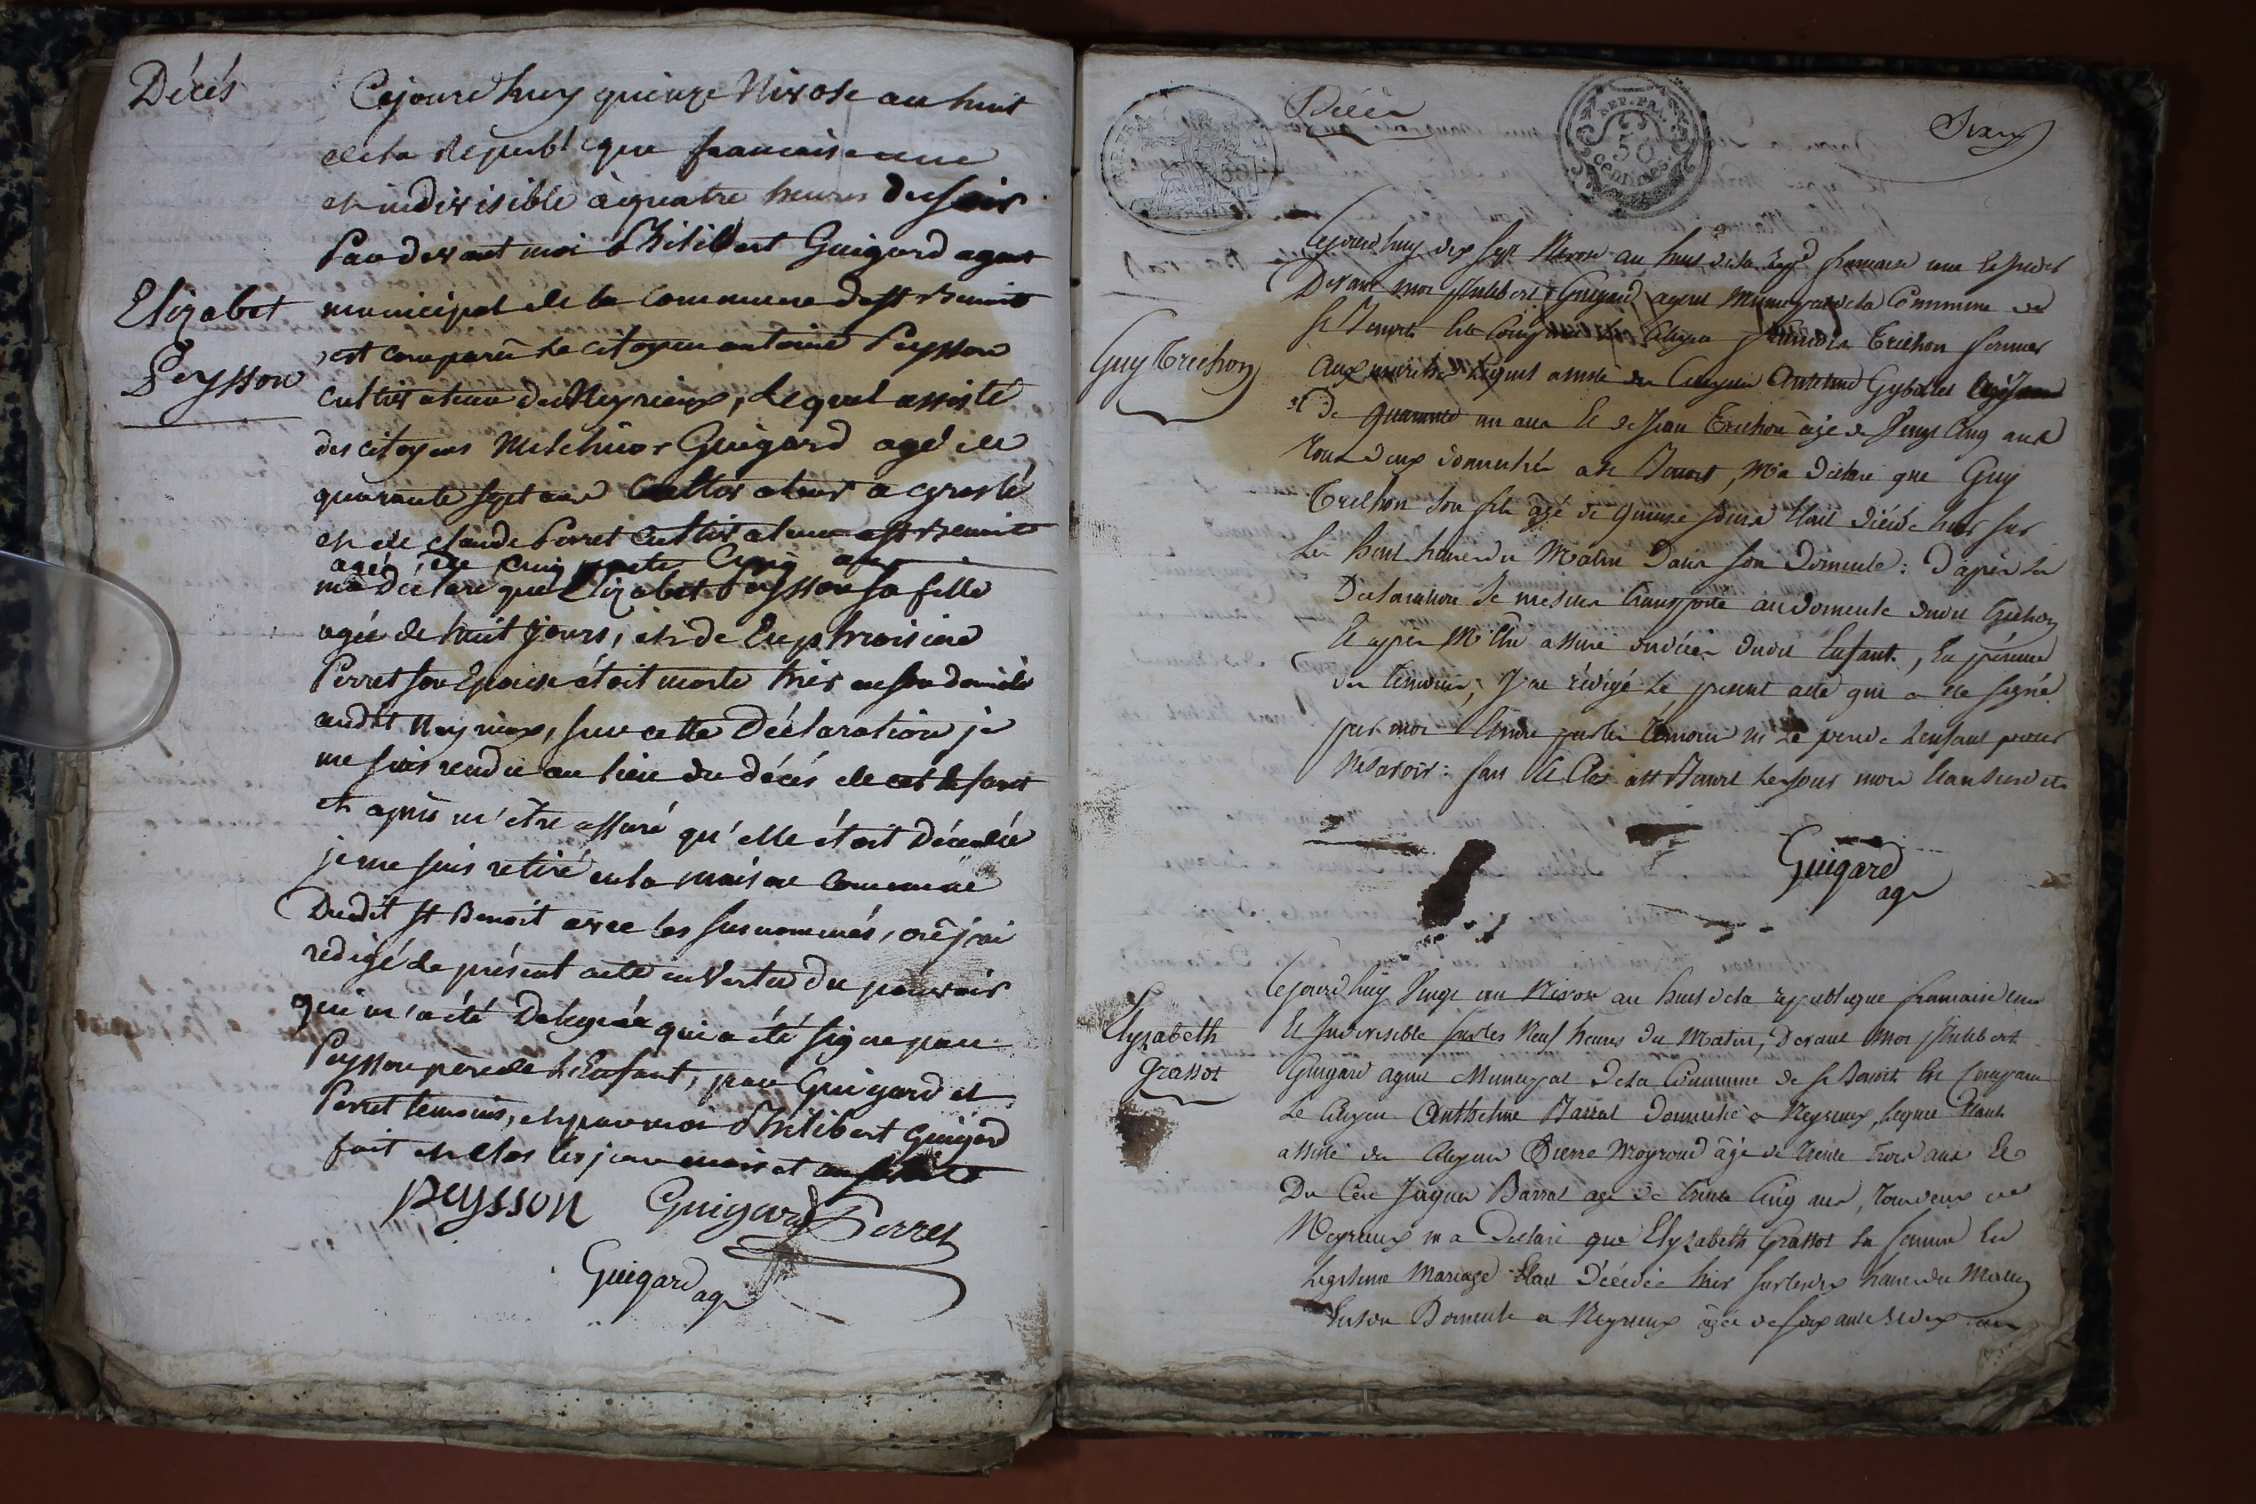 Décés
Cejourd huy quinze Nivose an huit
de la Republique francaise une
et indivisible à quatre heures du soir
Par devant moi Philibert Guigard agent
municipal de la commune de St Benoit
Elizabet
Peysson
est comparu le citoyen antoine Peysson
cultivateur de Neyrieux, lequel assisté
des citoyens Melchior Guigard agé de
quarante sept ans Cultivateur a
et de claude Perret Cultivateur a St Benoit
agé de cinquante Cinq ans
m'a déclaré que Elizabet Peysson sa fille
agée de huit jours, et de Euphroisine
Perret son Epouse étoit morte hier en son domicile
audit Neyrieux, sur cette Déclaration je
me suis rendu au lieu du décés de cet Enfant
et après m'etre assuré qu'elle étoit Décedée
je me suis retiré en la maison commune
Dudit St Benoit avec les surnommés, où j'ai
redigé le présent acte en Vertu du pouvoir
qui m'a été Delegué qui a été signé par
Peysson père de l'Enfant, par Guigard et
Perret temoins, et par moi Philibert Guigard
fait et clos les jour mois et an
peysson Guigard Perret
Guigard ag
Décès
REP. FRA.
50
centimes
Guy Trichon
Cejourd huy dix sept Nivose an huit de la Rep francaise une
Devant moi Philibert Guigard agent Municipal de la Commune de
St Benoit Est Comparu Citoyen Trichon fermier
Lequel assisté du Citoyen Anthelme
de quarante un ans Et de Jean Trichon âgé de Vingt Cinq ans
Tous deux domiciliés a St Benoit, M'a Déclaré que Guy
Trichon son fils âgé de quinze jours Etait Décédé hier sur
Les huit heures du Matin Dans son Domicile : D'après sa
Déclaration Je me suis transporté au domicile dudit Trichon
Et après M'Etre assuré du décès dudit Enfant, En présence
des temoins, J'ai rédigé Le présent acte qui a été signé
par moi les témoins ni Le père de L'enfant pour
ne savoir : fait Et Clos a St Benoit Les jour mois Et an susdits
Guigard
ag
Elyzabeth
Grassot
Cejourd huy Vingt un Nivose an huit de la republique francaise une
Et Indivisible sur les Neuf heures du Matin, Devant Moi Philibert
Guigard agent Municipal De la Commune de St Benoit Est Comparu
Le Citoyen Anthelme Barral Domicilié a Neyrieux, Lequel Etant
assisté du Citoyen Pierre Moyroud âgé de trente trois ans Et
Du Cen Jaques Barral agé de trente Cinq ans, Tous deux de
Neyrieux m'a Déclaré que Elyzabeth Grassot sa femme En
Legitime Mariage Etait Décédée hier sur les dix heures du Matin
En son Domicile a Neyrieux âgée de soixante deux ans